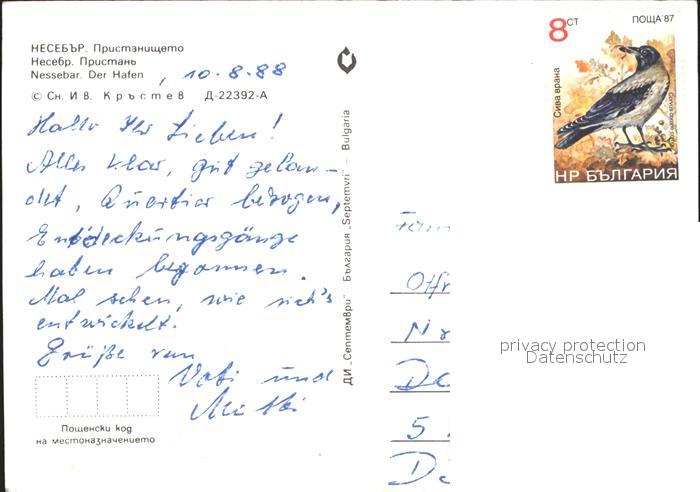 НЕСЕБЪР. Пристанището
Несебр. Пристань
Nessebar. Der Hafen, 10.8.88
© Сн. И В. Кръстев Д-22392-А
Hallo Ihr Lieben!
Alles klar, gut gelan-
det, Quartier bezogen,
Entdeckungsgänge
haben begonnen.
Mal sehen, wie sich's
entwickelt.
Grüße von
Vati und
Mutti
Пощенски код
на местоназначението
ДИ „Септември" България „Septemvri" – Bulgaria
8 СТ
ПОЩА'87
Сива врана
НР БЪЛГАРИЯ
Fam
Offr
5.
privacy protection
Datenschutz